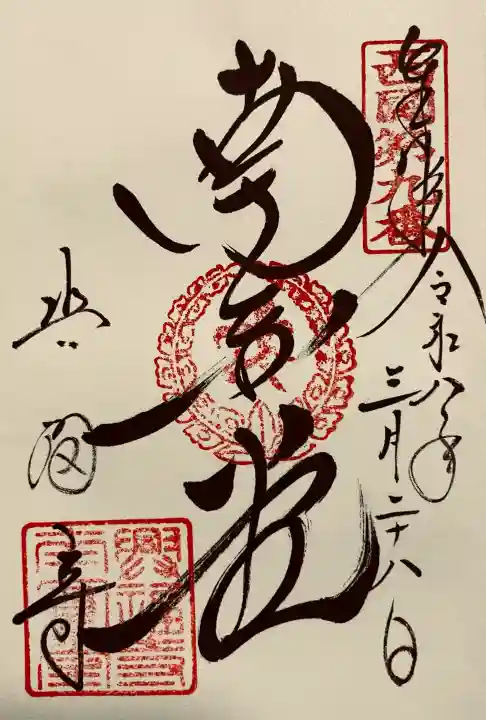 西国第九番
令和八年
三月二十八日
南円堂
興福寺
興福寺
南圓堂